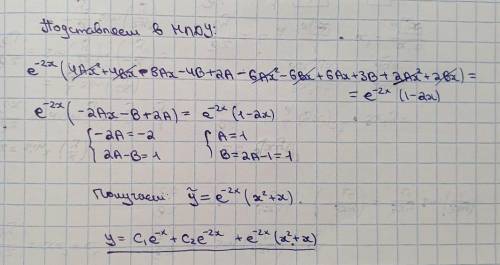 Подставляем в НЛДУ:
e^{-2x}(4Ax²+4Bx-8Ax-4B+2A-6Ax²-6Bx+6Ax+3B+2Ax²+2Bx)=
= e^{-2x}(1-2x)
e^{-2x}(-2Ax-B+2A)= e^{-2x}(1-2x)
{ -2A=-2 { A=1
{ 2A-B=1 { B=2A-1=1
Получаем: ỹ=e^{-2x}(x²+x)
y= C₁e^{-x}+C₂e^{-2x}+e^{-2x}(x²+x)